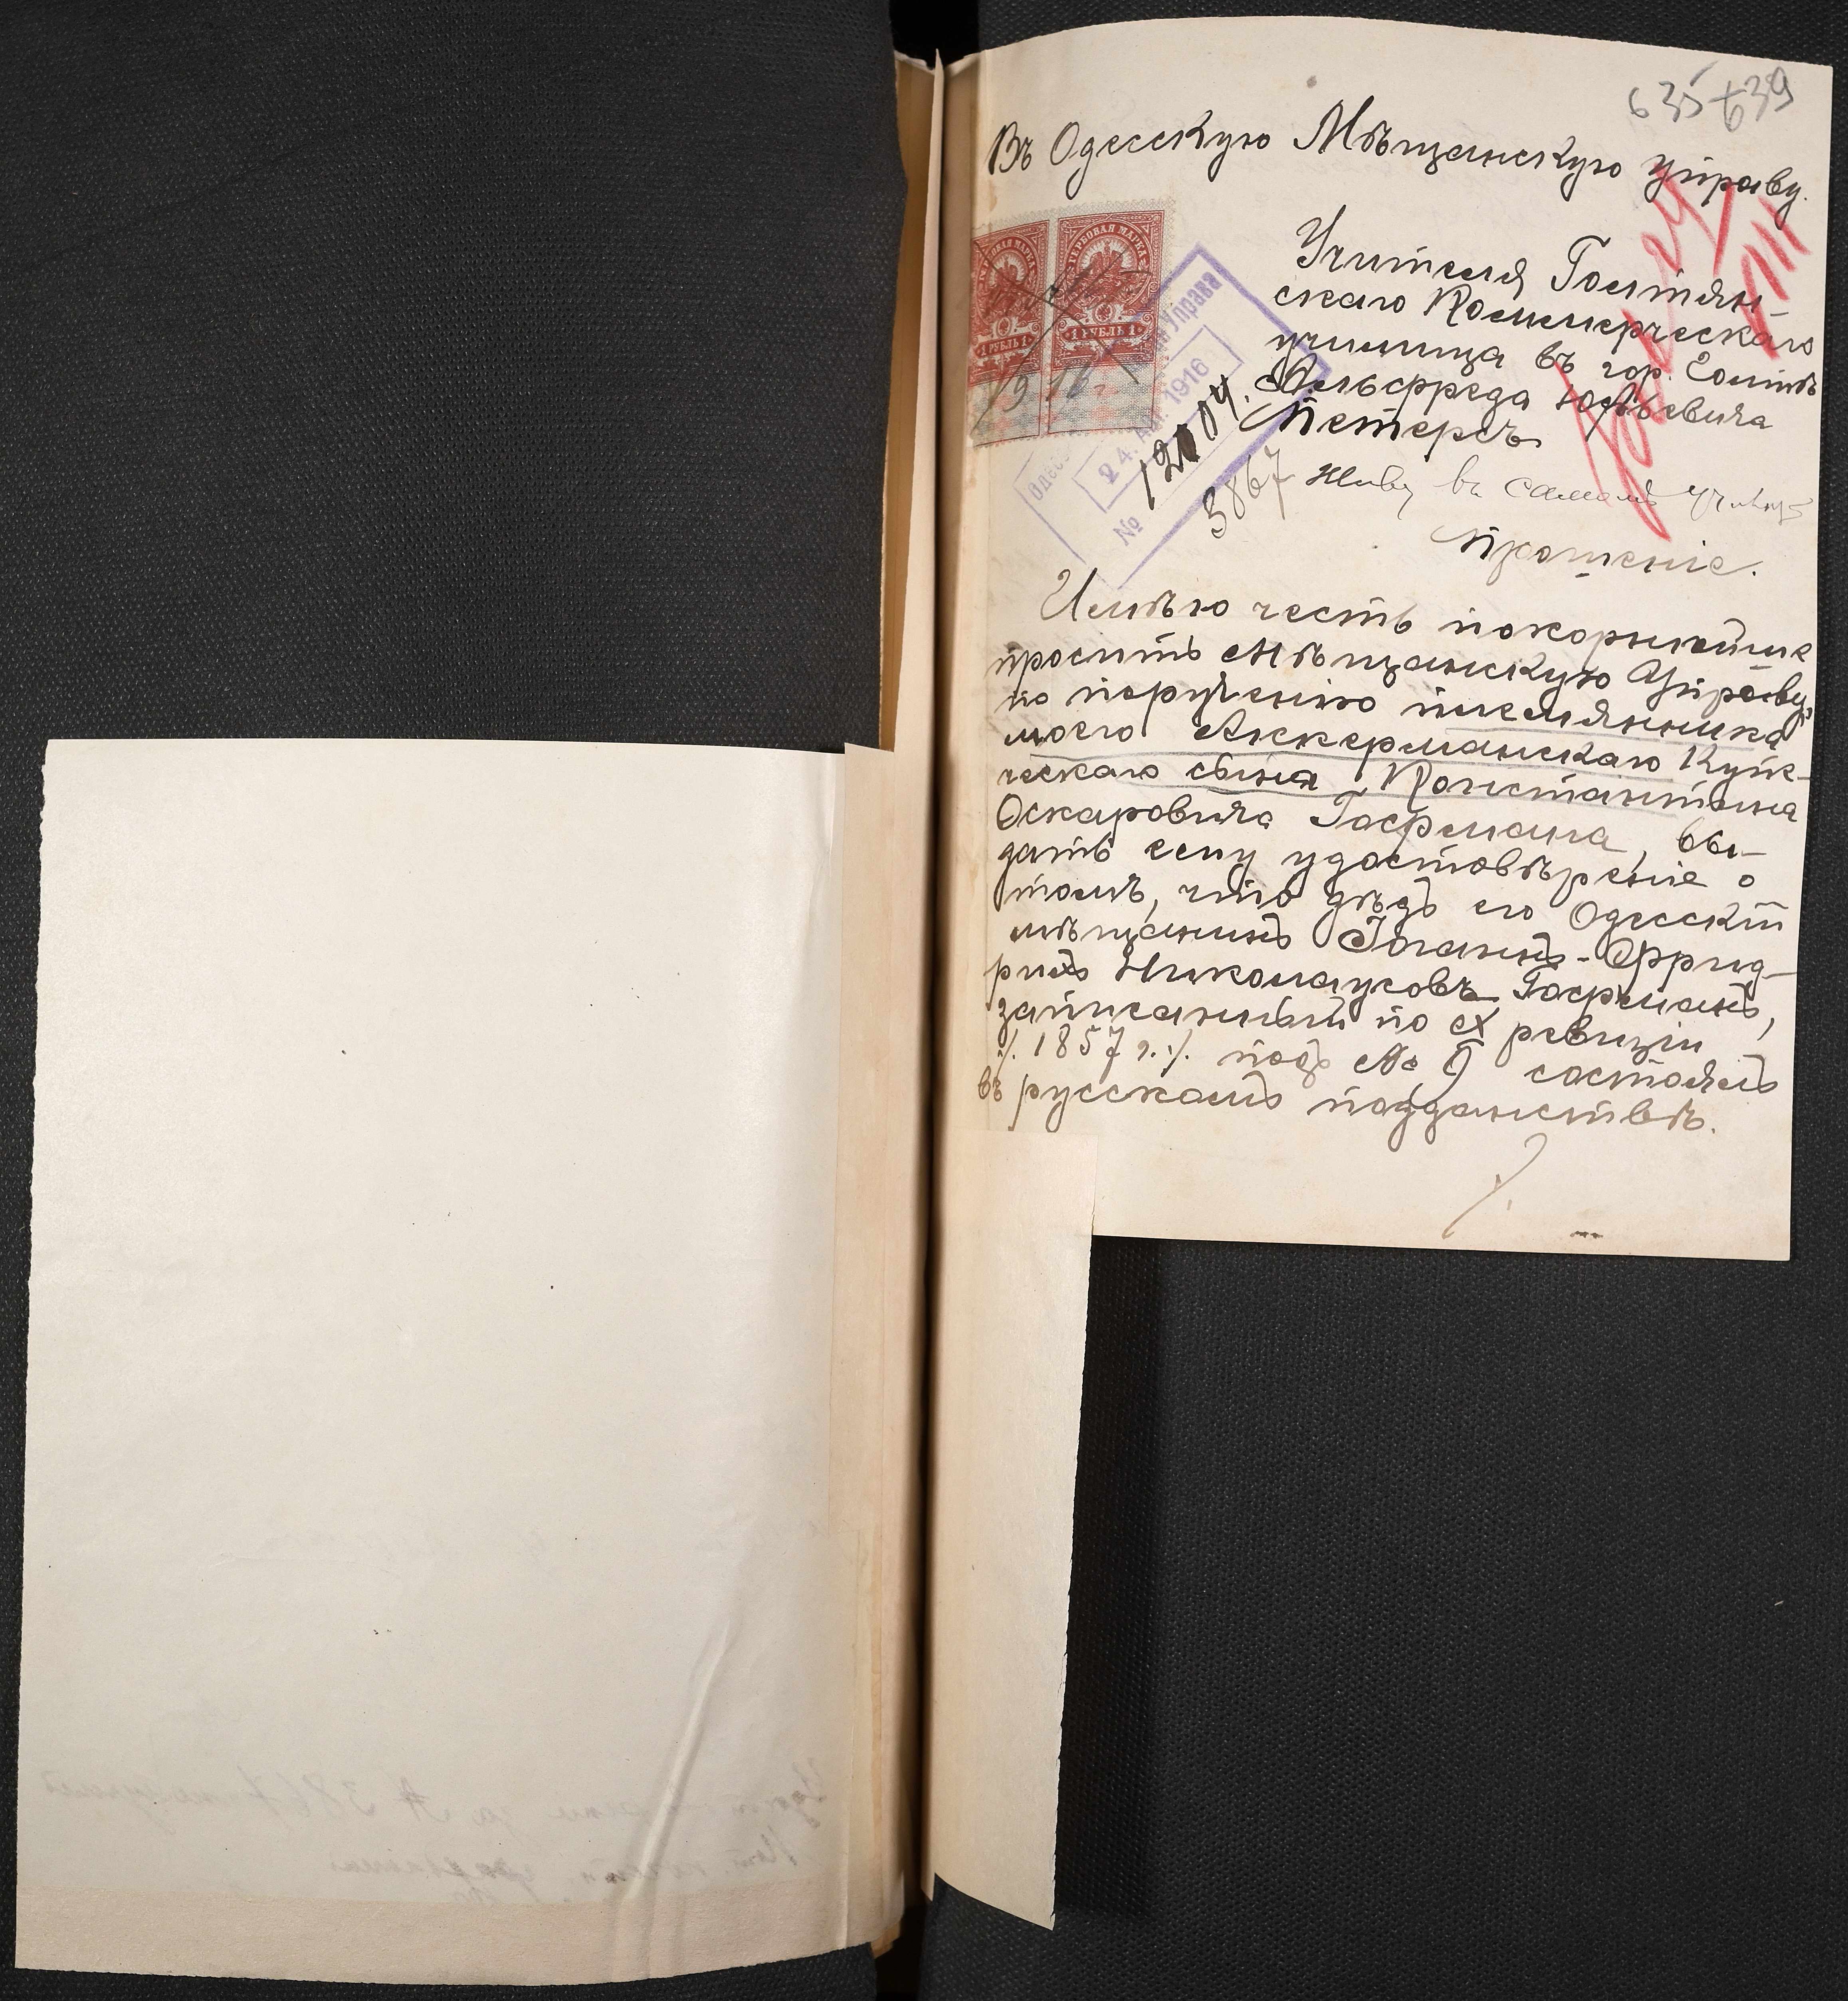 635 639
Въ Одесскую Мѣщанскую Управу.
Учителя Голтян
скаго Коммерческаго
училища въ гор. Голтѣ
Альфреда Юльевича
Петерсъ
живу въ самомъ
Прошеніе.
ГЕРБОВАЯ МАРКА
1 РУБЛЬ 1
ГЕРБОВАЯ МАРКА
1 РУБЛЬ 1
1916 г.
Управа
24 1916
№ 12004.
3867
Имѣю честь покорнѣйше
просить Мѣщанскую Управу,
по порученію племянника
моего Аккерманскаго Купе-
ческаго сына Константина
Оскаровича Гофмана, вы-
дать ему удостовѣреніе о
томъ, что дѣдъ его Одесскій
мѣщанинъ Іоганнъ-Фрид-
рихъ Николаусовъ Гофманъ,
записанный по X ревизіи
/. 1857 г. /. подъ № 9 состоялъ
въ русскомъ подданствѣ.